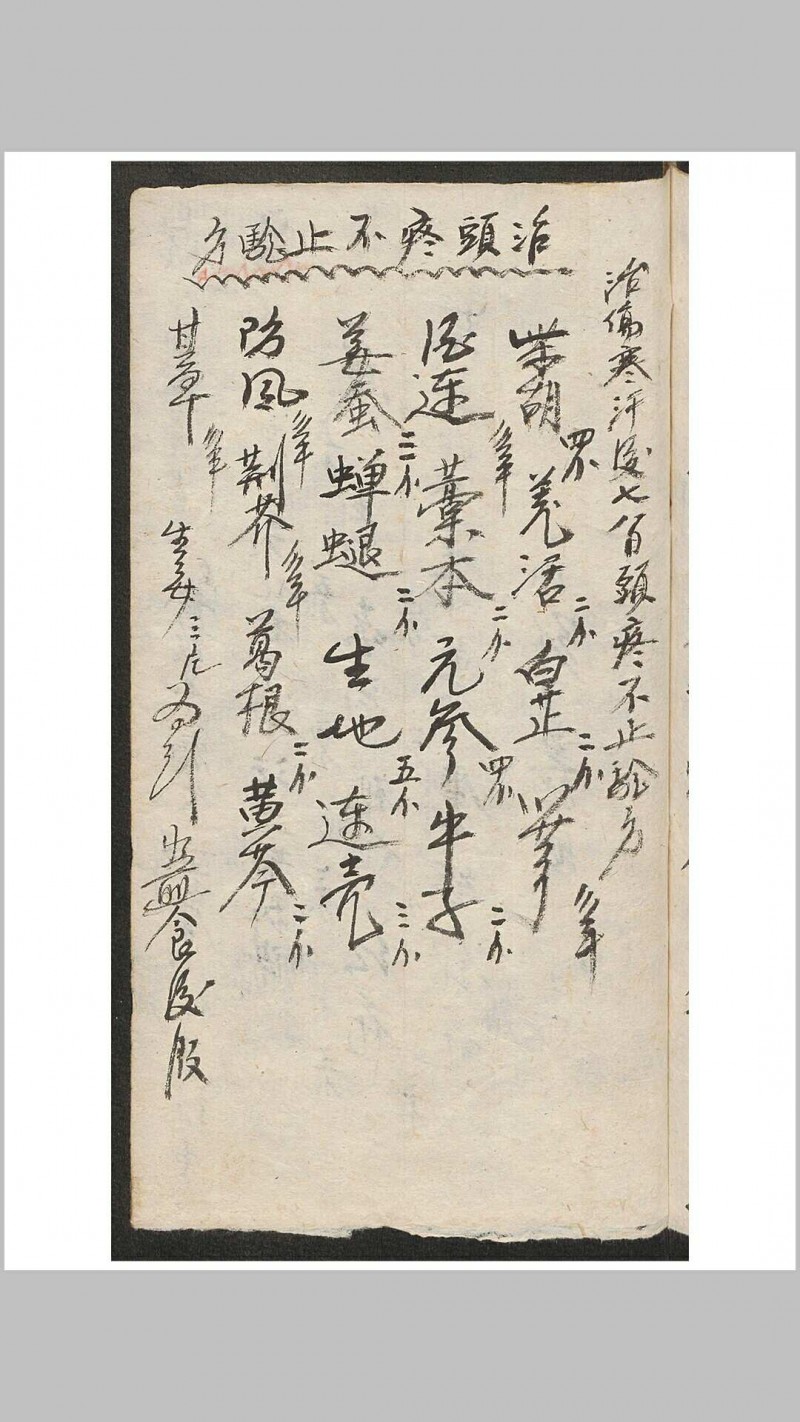 治頭疼不止驗方
治傷寒汗後七八日頭疼不止驗方
柴胡 四分 羌活 二分 白芷 二分 川芎 錢半
酒連 錢半 藁本 二分 元參 四分 牛子 二分
姜蚕 三分 蝉蜕 二分 生地 五分 連壳 三分
防風 錢半 荆芥 錢半 葛根 二分 黄芩 二分
甘草 錢半 生姜三片為引 食後服